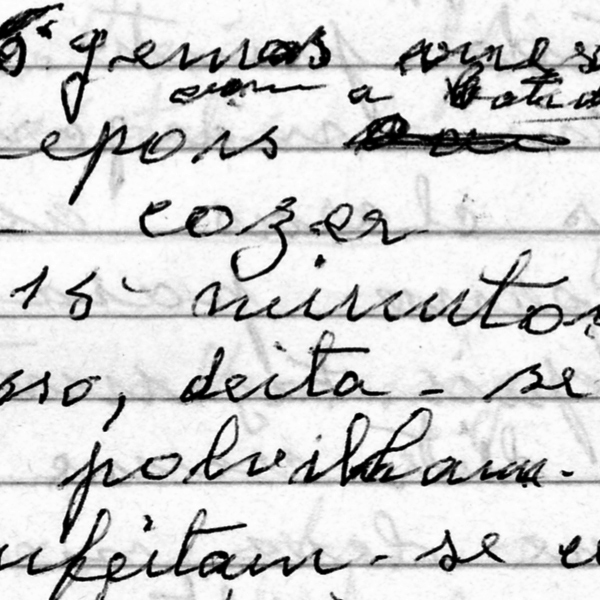 6 gemas
com a batat
epois
cozer
15 minutos
sso, deita-se
polvilham-
nfeitam-se c